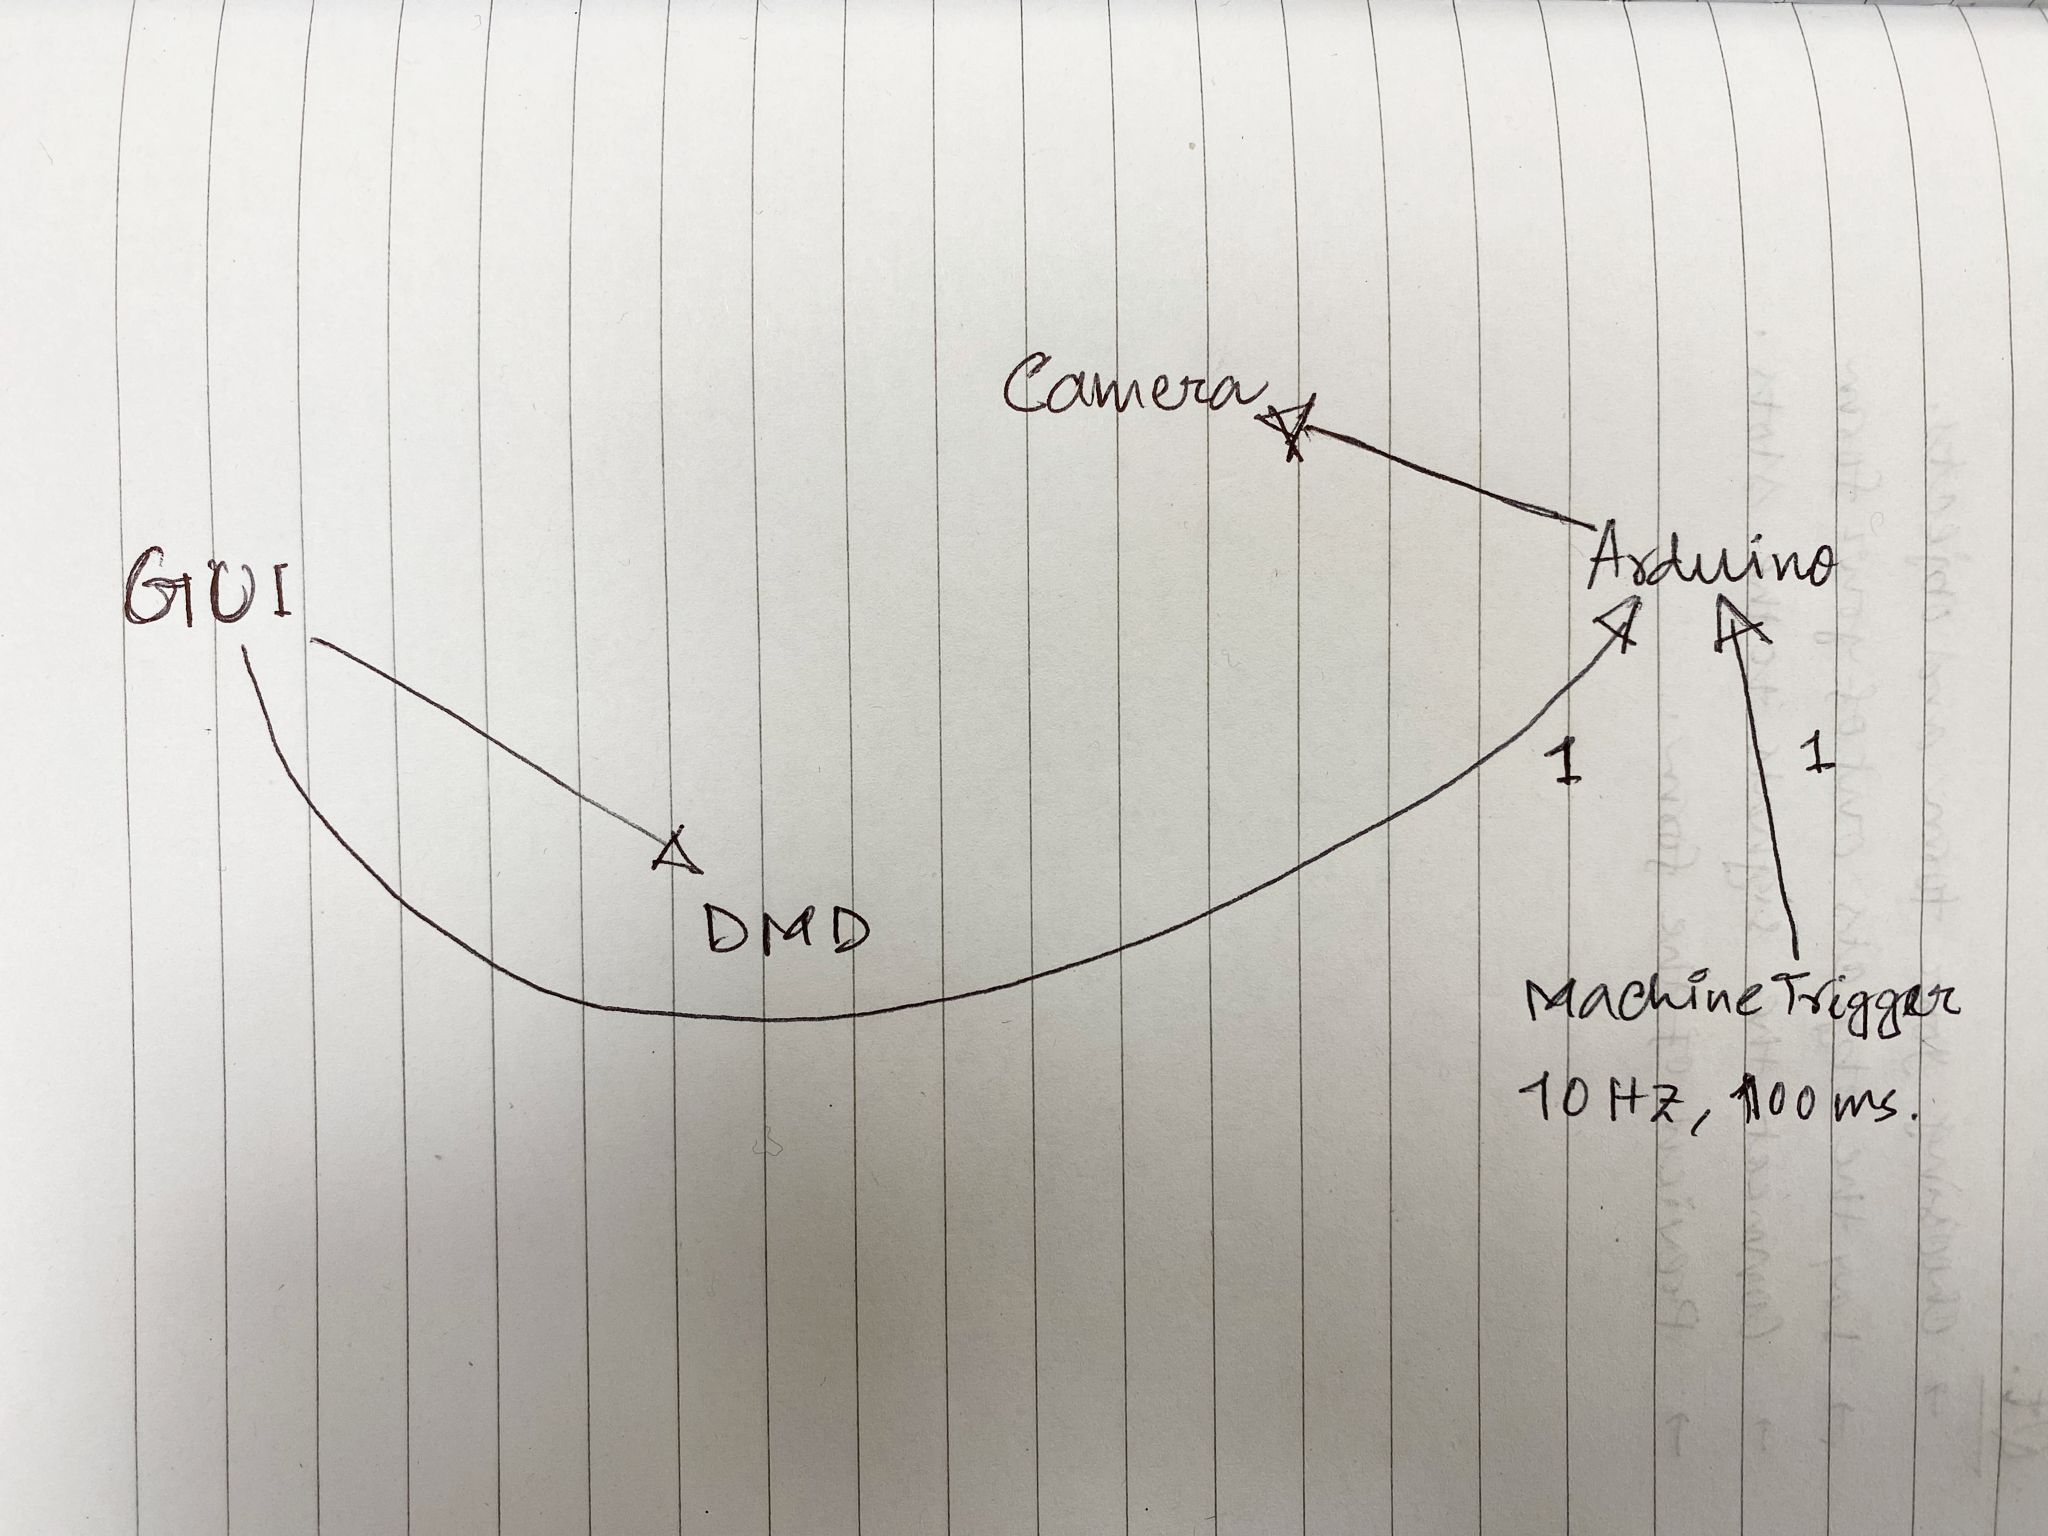 Camera
Arduino
GUI
1
1
DMD
Machine Trigger
10 Hz, 100 ms.